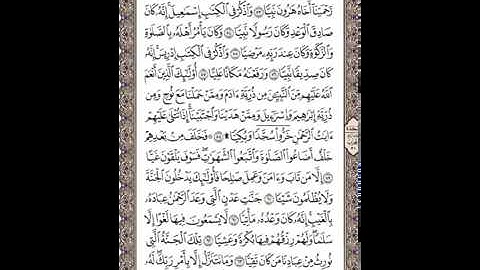 رَّحْمَتِنَآ أَخَاهُ هَٰرُونَ نَبِيًّا ۝٥٣ وَٱذْكُرْ فِى ٱلْكِتَٰبِ إِسْمَٰعِيلَ إِنَّهُۥ كَانَ
صَادِقَ ٱلْوَعْدِ وَكَانَ رَسُولًا نَّبِيًّا ۝٥٤ وَكَانَ يَأْمُرُ أَهْلَهُۥ بِٱلصَّلَوٰةِ
وَٱلزَّكَوٰةِ وَكَانَ عِندَ رَبِّهِۦ مَرْضِيًّا ۝٥٥ وَٱذْكُرْ فِى ٱلْكِتَٰبِ إِدْرِيسَ إِنَّهُۥ
كَانَ صِدِّيقًا نَّبِيًّا ۝٥٦ وَرَفَعْنَٰهُ مَكَانًا عَلِيًّا ۝٥٧ أُو۟لَٰٓئِكَ ٱلَّذِينَ أَنْعَمَ
ٱللَّهُ عَلَيْهِم مِّنَ ٱلنَّبِيِّـۧنَ مِن ذُرِّيَّةِ ءَادَمَ وَمِمَّنْ حَمَلْنَا مَعَ نُوحٍ وَمِن
ذُرِّيَّةِ إِبْرَٰهِيمَ وَإِسْرَٰٓءِيلَ وَمِمَّنْ هَدَيْنَا وَٱجْتَبَيْنَآ إِذَا تُتْلَىٰ عَلَيْهِمْ
ءَايَٰتُ ٱلرَّحْمَٰنِ خَرُّوا۟ سُجَّدًا وَبُكِيًّا ۩ ۝٥٨ فَخَلَفَ مِنۢ بَعْدِهِمْ
خَلْفٌ أَضَاعُوا۟ ٱلصَّلَوٰةَ وَٱتَّبَعُوا۟ ٱلشَّهَوَٰتِ فَسَوْفَ يَلْقَوْنَ غَيًّا
۝٥٩ إِلَّا مَن تَابَ وَءَامَنَ وَعَمِلَ صَٰلِحًا فَأُو۟لَٰٓئِكَ يَدْخُلُونَ ٱلْجَنَّةَ
وَلَا يُظْلَمُونَ شَيْـًٔا ۝٦٠ جَنَّٰتِ عَدْنٍ ٱلَّتِى وَعَدَ ٱلرَّحْمَٰنُ عِبَادَهُۥ
بِٱلْغَيْبِ إِنَّهُۥ كَانَ وَعْدُهُۥ مَأْتِيًّا ۝٦١ لَّا يَسْمَعُونَ فِيهَا لَغْوًا إِلَّا
سَلَٰمًا وَلَهُمْ رِزْقُهُمْ فِيهَا بُكْرَةً وَعَشِيًّا ۝٦٢ تِلْكَ ٱلْجَنَّةُ ٱلَّتِى
نُورِثُ مِنْ عِبَادِنَا مَن كَانَ تَقِيًّا ۝٦٣ وَمَا نَتَنَزَّلُ إِلَّا بِأَمْرِ رَبِّكَ لَهُۥ